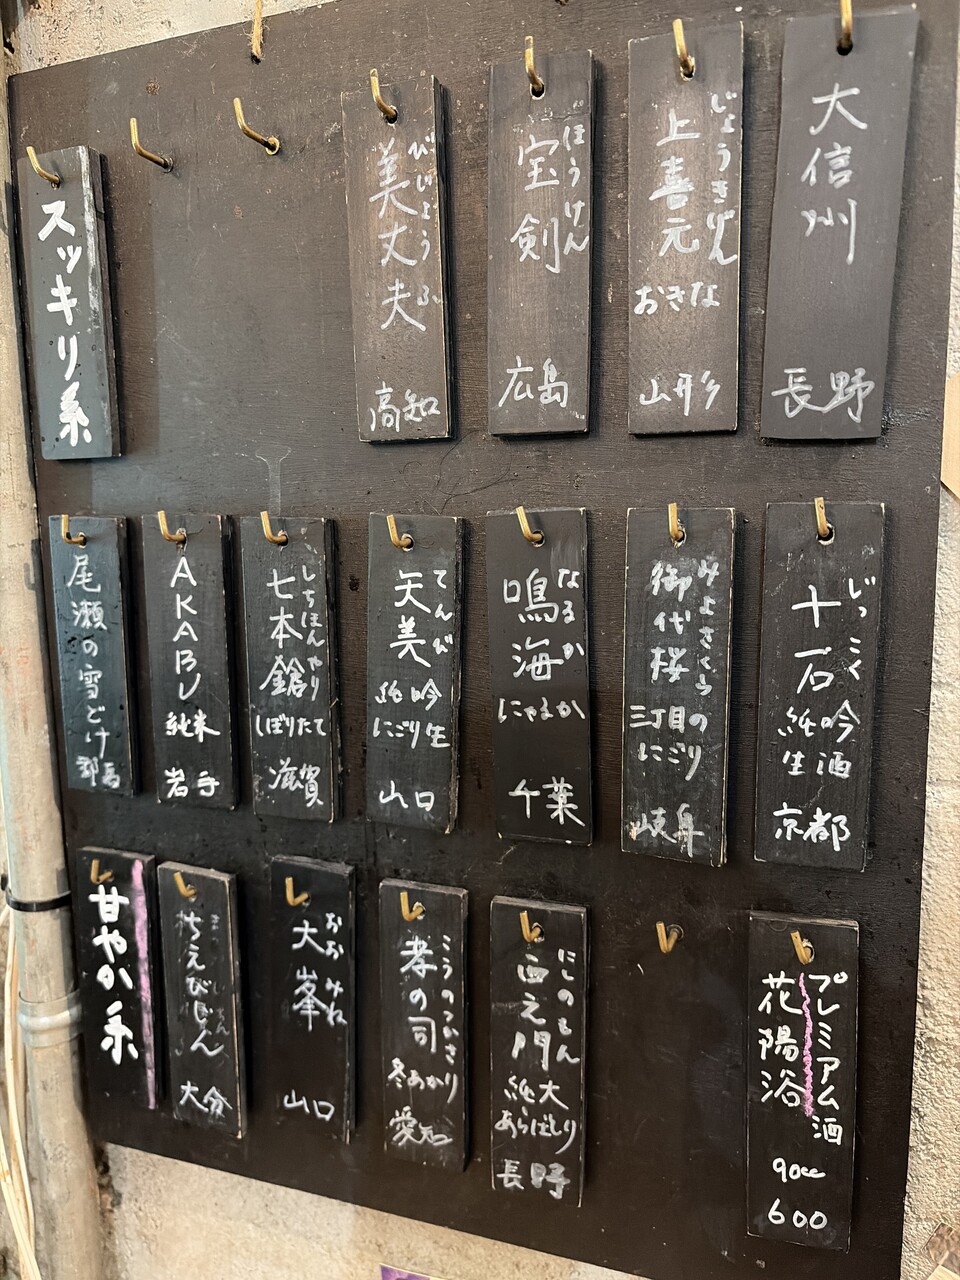 大信州
長野
じょうきげん
上喜元
おきな
山形
ほうけん
宝剣
広島
びじょうふ
美丈夫
高知
スッキリ系
じっこく
十石
純吟
生酒
京都
みよさくら
御代桜
三丁目の
にごり
岐阜
なるか
鳴海
にゃるか
千葉
てんび
天美
純吟
にごり生
山口
しちほんやり
七本鎗
しぼりたて
滋賀
AKABU
純米
岩手
尾瀬の雪どけ
群馬
プレミアム酒
花陽浴
90cc
600
にしのもん
西之門
純大
あらばしり
長野
こうのつかさ
孝の司
冬あかり
愛知
おおみね
大峯
山口
ちえびじん
大分
甘やか系